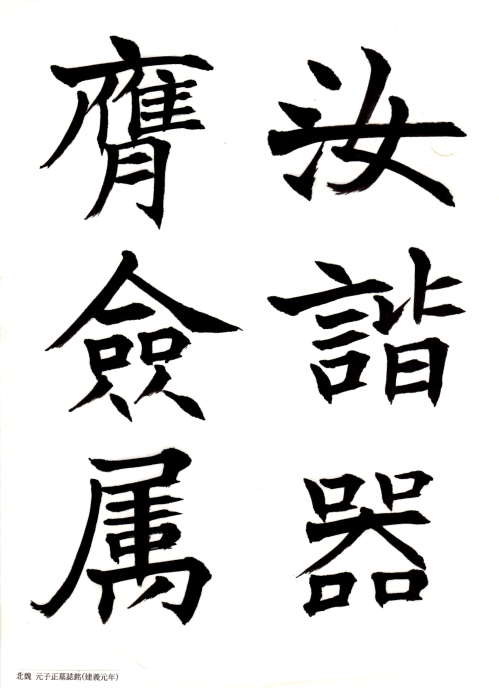 汝諧器
膺僉属
北魏 元子正墓誌銘(建義元年)